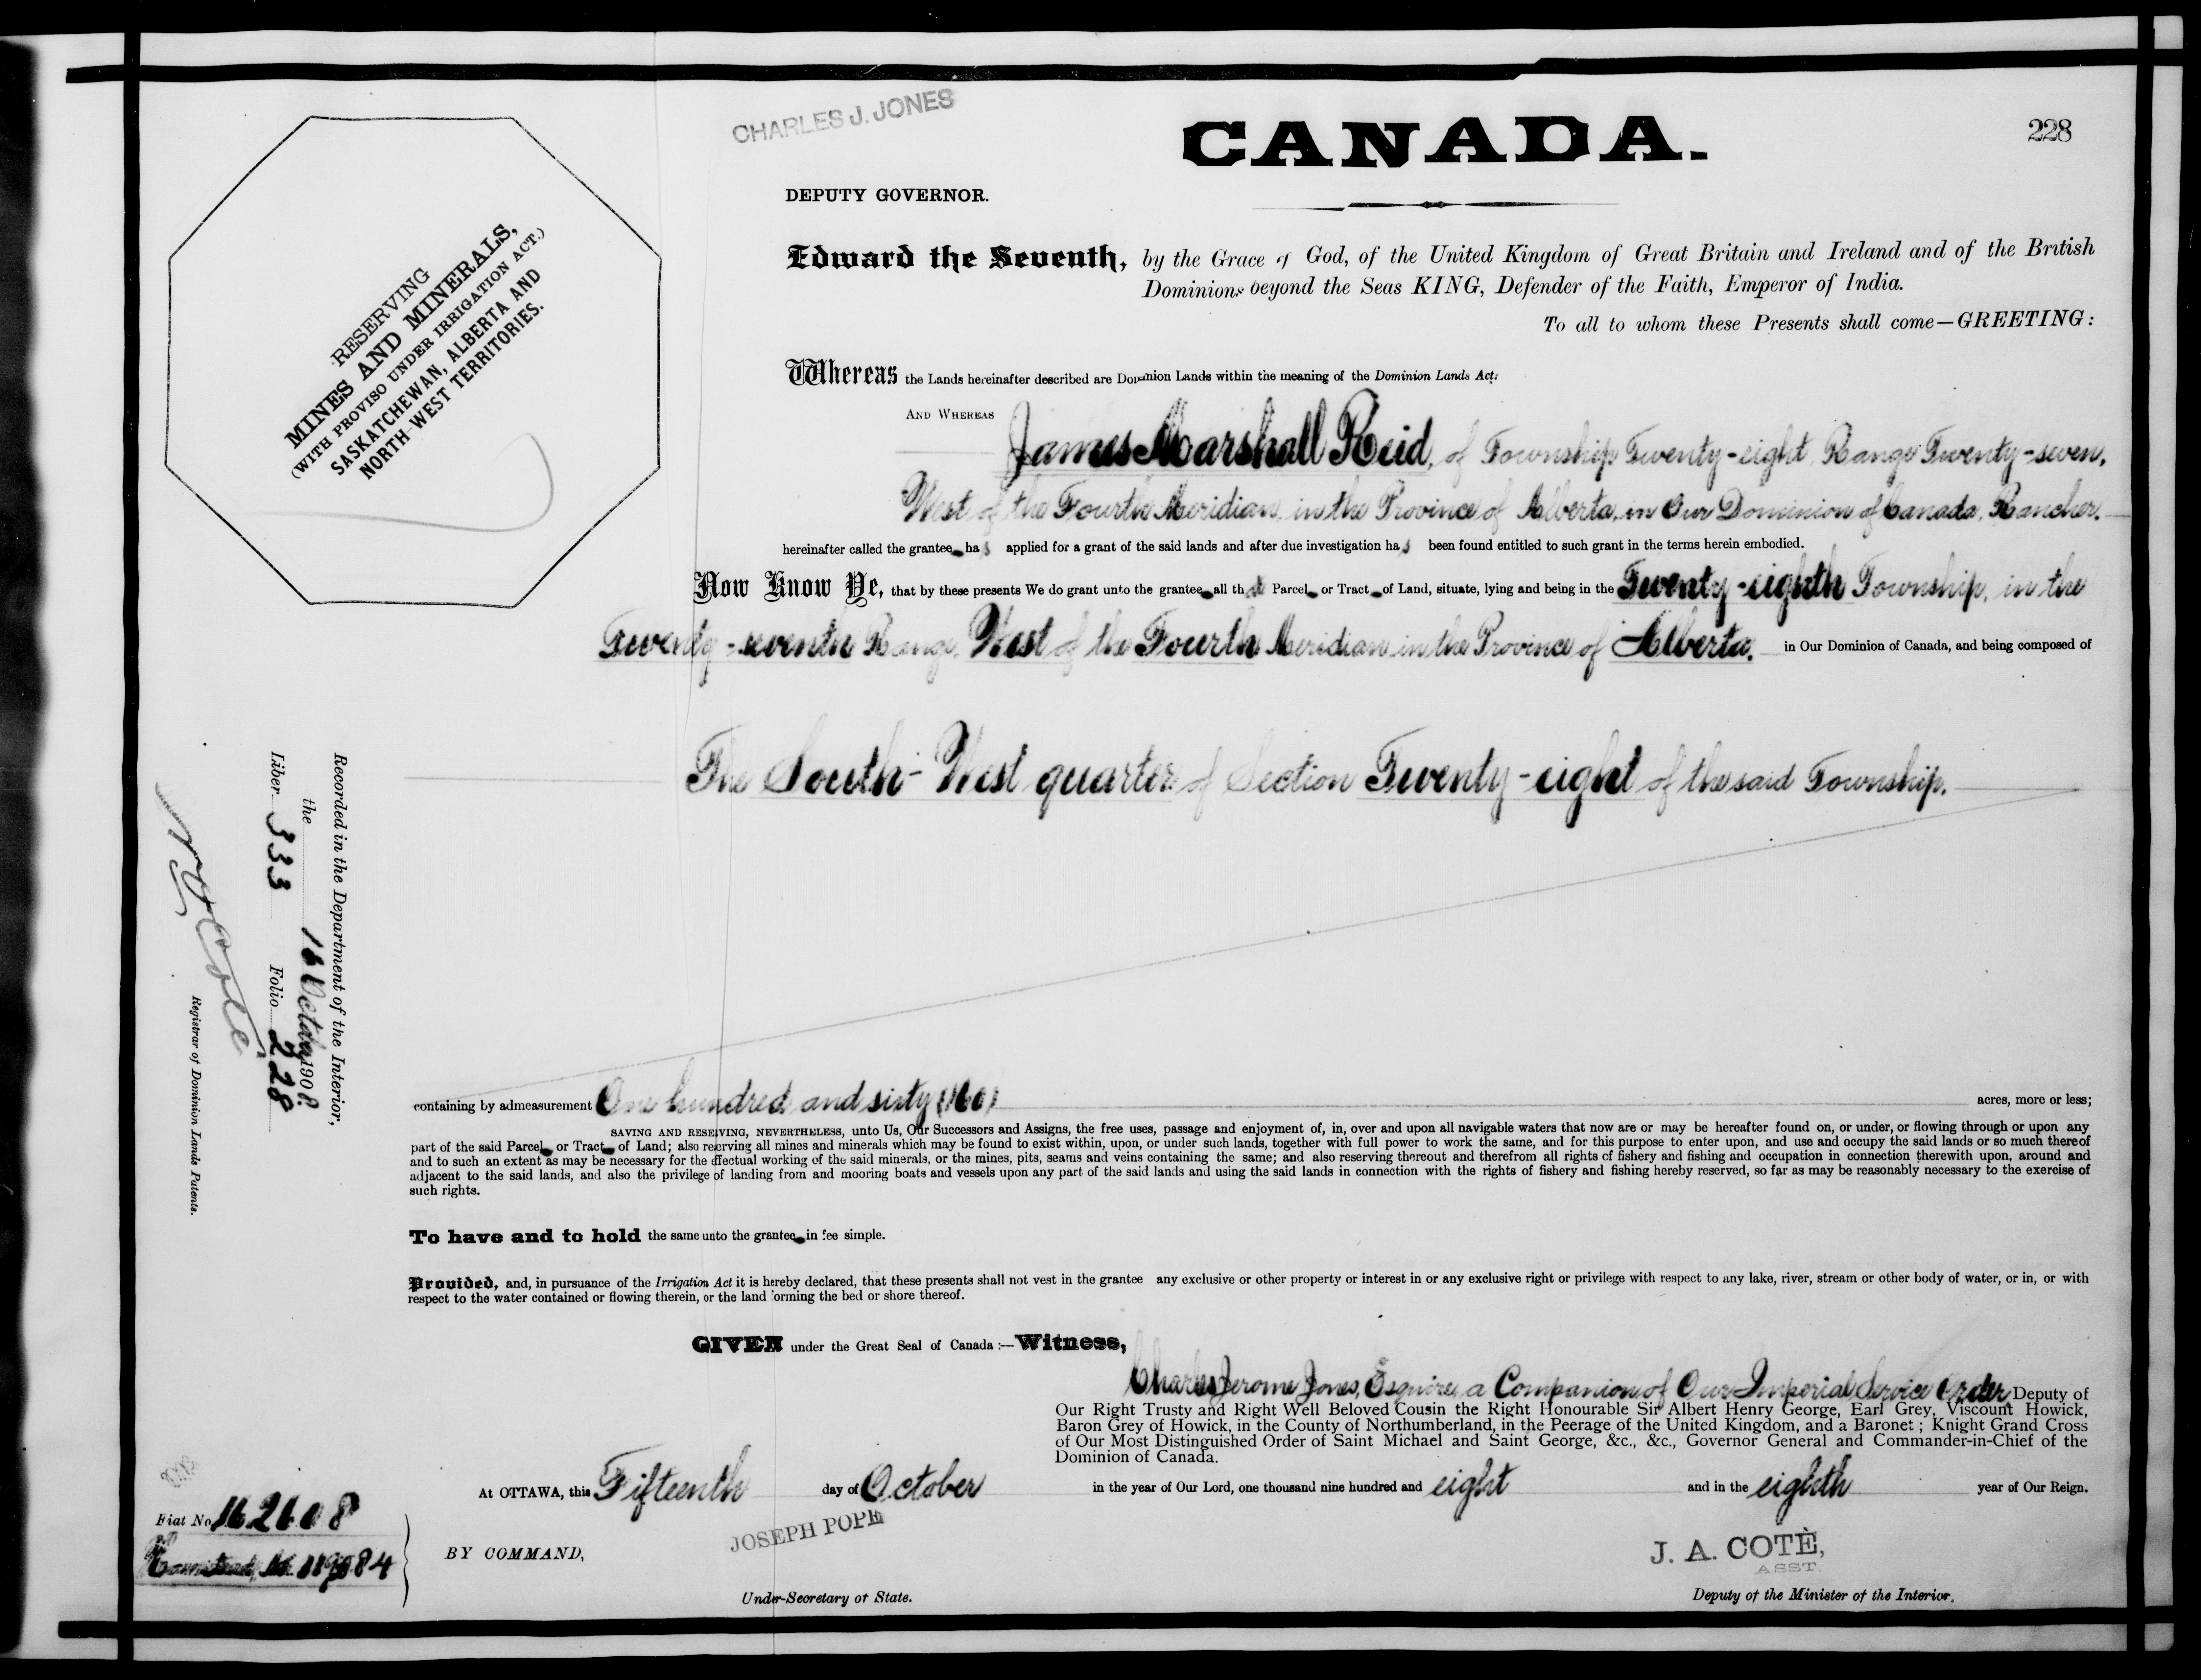 CHARLES J. JONES
CANADA.
228
DEPUTY GOVERNOR.
RESERVING
MINES AND MINERALS,
(WITH PROVISO UNDER IRRIGATION ACT.)
SASKATCHEWAN, ALBERTA AND
NORTH-WEST TERRITORIES.
Edward the Seventh, by the Grace of God, of the United Kingdom of Great Britain and Ireland and of the British
Dominions beyond the Seas KING, Defender of the Faith, Emperor of India.
To all to whom these Presents shall come—GREETING:
Whereas the Lands hereinafter described are Dominion Lands within the meaning of the Dominion Lands Act:
AND WHEREAS
James Marshall Reid, of Township Twenty-eight, Range Twenty-seven,
West of the Fourth Meridian, in the Province of Alberta, in Our Dominion of Canada, Rancher.
hereinafter called the grantee has applied for a grant of the said lands and after due investigation has been found entitled to such grant in the terms herein embodied.
Now Know Ye, that by these presents We do grant unto the grantee all that Parcel or Tract of Land, situate, lying and being in the Twenty-eighth Township, in the
Twenty-seventh Range, West of the Fourth Meridian in the Province of Alberta, in Our Dominion of Canada, and being composed of
The South-West quarter of Section Twenty-eight of the said Township.
Recorded in the Department of the Interior,
the 16 October 1908
Liber 333 Folio 228
Coté
Registrar of Dominion Lands Patents.
containing by admeasurement One hundred and sixty (160) acres, more or less;
SAVING AND RESERVING, NEVERTHELESS, unto Us, Our Successors and Assigns, the free uses, passage and enjoyment of, in, over and upon all navigable waters that now are or may be hereafter found on, or under, or flowing through or upon any
part of the said Parcel or Tract of Land; also reserving all mines and minerals which may be found to exist within, upon, or under such lands, together with full power to work the same, and for this purpose to enter upon, and use and occupy the said lands or so much thereof
and to such an extent as may be necessary for the effectual working of the said minerals, or the mines, pits, seams and veins containing the same; and also reserving thereout and therefrom all rights of fishery and fishing and occupation in connection therewith upon, around and
adjacent to the said lands, and also the privilege of landing from and mooring boats and vessels upon any part of the said lands and using the said lands in connection with the rights of fishery and fishing hereby reserved, so far as may be reasonably necessary to the exercise of
such rights.
To have and to hold the same unto the grantee in fee simple.
Provided, and, in pursuance of the Irrigation Act it is hereby declared, that these presents shall not vest in the grantee any exclusive or other property or interest in or any exclusive right or privilege with respect to any lake, river, stream or other body of water, or in, or with
respect to the water contained or flowing therein, or the land forming the bed or shore thereof.
GIVEN under the Great Seal of Canada :—Witness,
Charles Jerome Jones, Esquire, a Companion of Our Imperial Service Order Deputy of
Our Right Trusty and Right Well Beloved Cousin the Right Honourable Sir Albert Henry George, Earl Grey, Viscount Howick,
Baron Grey of Howick, in the County of Northumberland, in the Peerage of the United Kingdom, and a Baronet ; Knight Grand Cross
of Our Most Distinguished Order of Saint Michael and Saint George, &c., &c., Governor General and Commander-in-Chief of the
Dominion of Canada.
At OTTAWA, this Fifteenth day of October in the year of Our Lord, one thousand nine hundred and eight and in the eighth year of Our Reign.
Fiat No. 162608
BY COMMAND,
JOSEPH POPE
Under-Secretary of State.
J. A. COTÈ,
ASST.
Deputy of the Minister of the Interior.